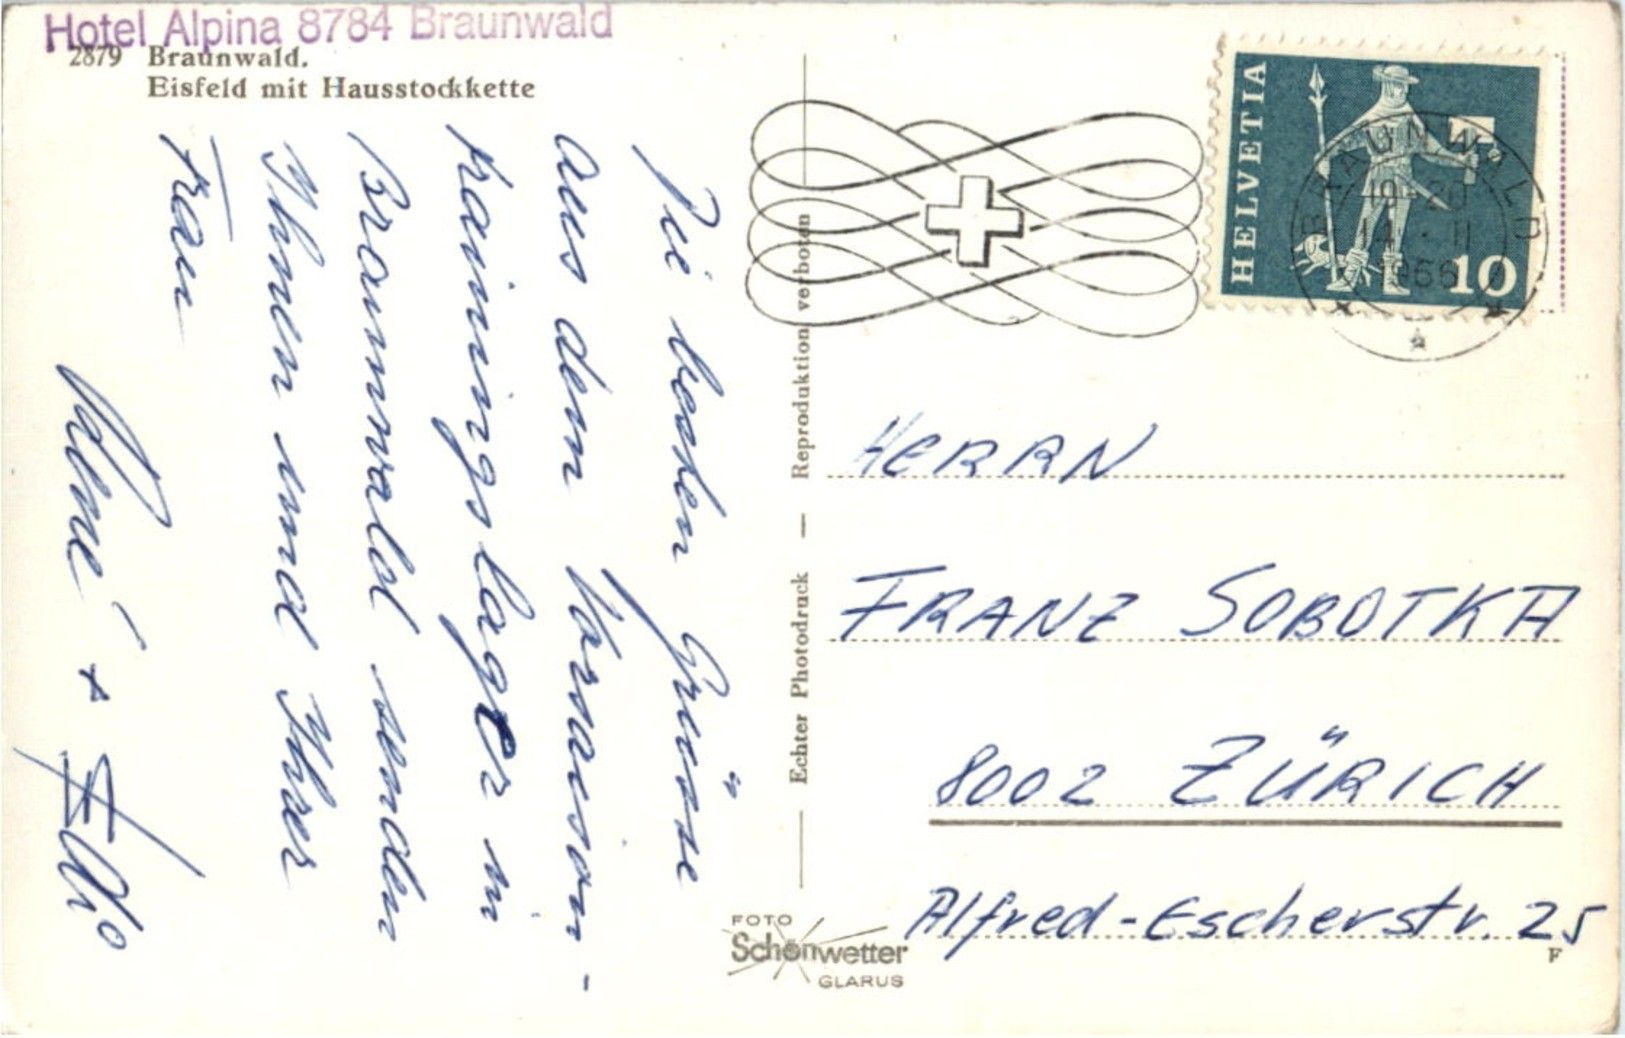 Hotel Alpina 8784 Braunwald
2879 Braunwald.
Eisfeld mit Hausstockkette
Die besten Grüsse
aus dem Vorsaison-
trainingslager in
Braunwald senden
Ihnen und Ihrer
Frau
+
Reproduktion verboten
— Echter Photodruck —
HELVETIA
10
BRAUNWALD
19-20
14.11
1966
HERRN
FRANZ SOBOTKA
8002 ZÜRICH
Alfred-Escherstr. 25
FOTO
Schönwetter
GLARUS
F